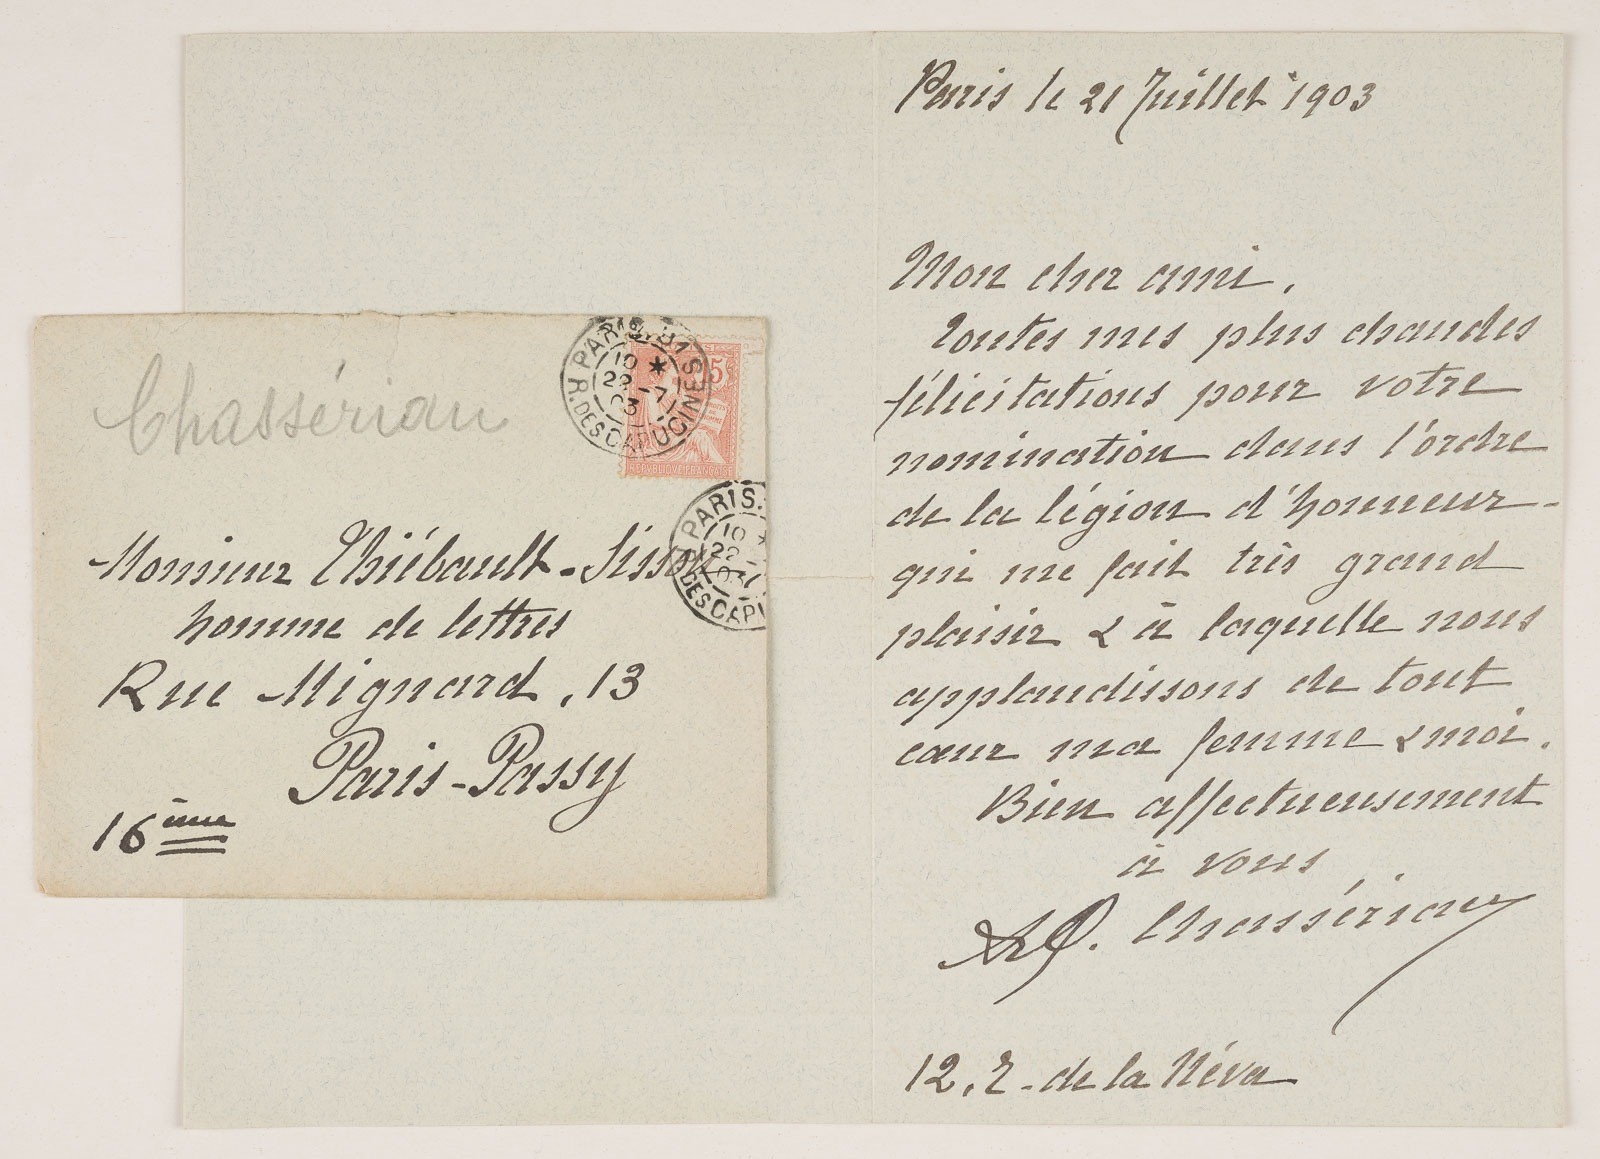 Paris le 21 Juillet 1903
Mon cher ami,
Toutes mes plus chaudes
félicitations pour votre
nomination dans l'ordre
de la légion d'honneur -
qui me fait très grand
plaisir & à laquelle nous
applaudissons de tout
cœur ma femme & moi.
Bien affectueusement
à vous
Chassériau
12, r. de la Néva
Chassériau
Monsieur Thiébault-Sisson
homme de lettres
Rue Mignard, 13
Paris-Passy
16ème
PARIS. 81
R. DES CAPUCINES
10 *
22 -7
03
15
REPVBLIQVE FRANÇAISE
PARIS.
10 *
22 -7
03
DES CAPU